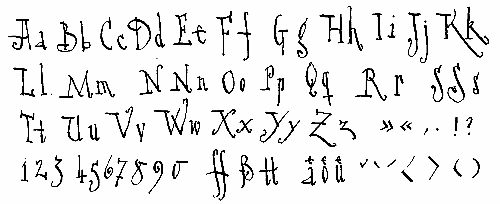 Aa Bb Cc Dd Ee Ff Gg Hh Ii Jj Kk
Ll Mm N Nn Oo Pp Qq Rr SSs
Tt Uu Vv Ww Xx Yy Zz »« ,. !?
1234567890 ff ß tt äöü < > ()